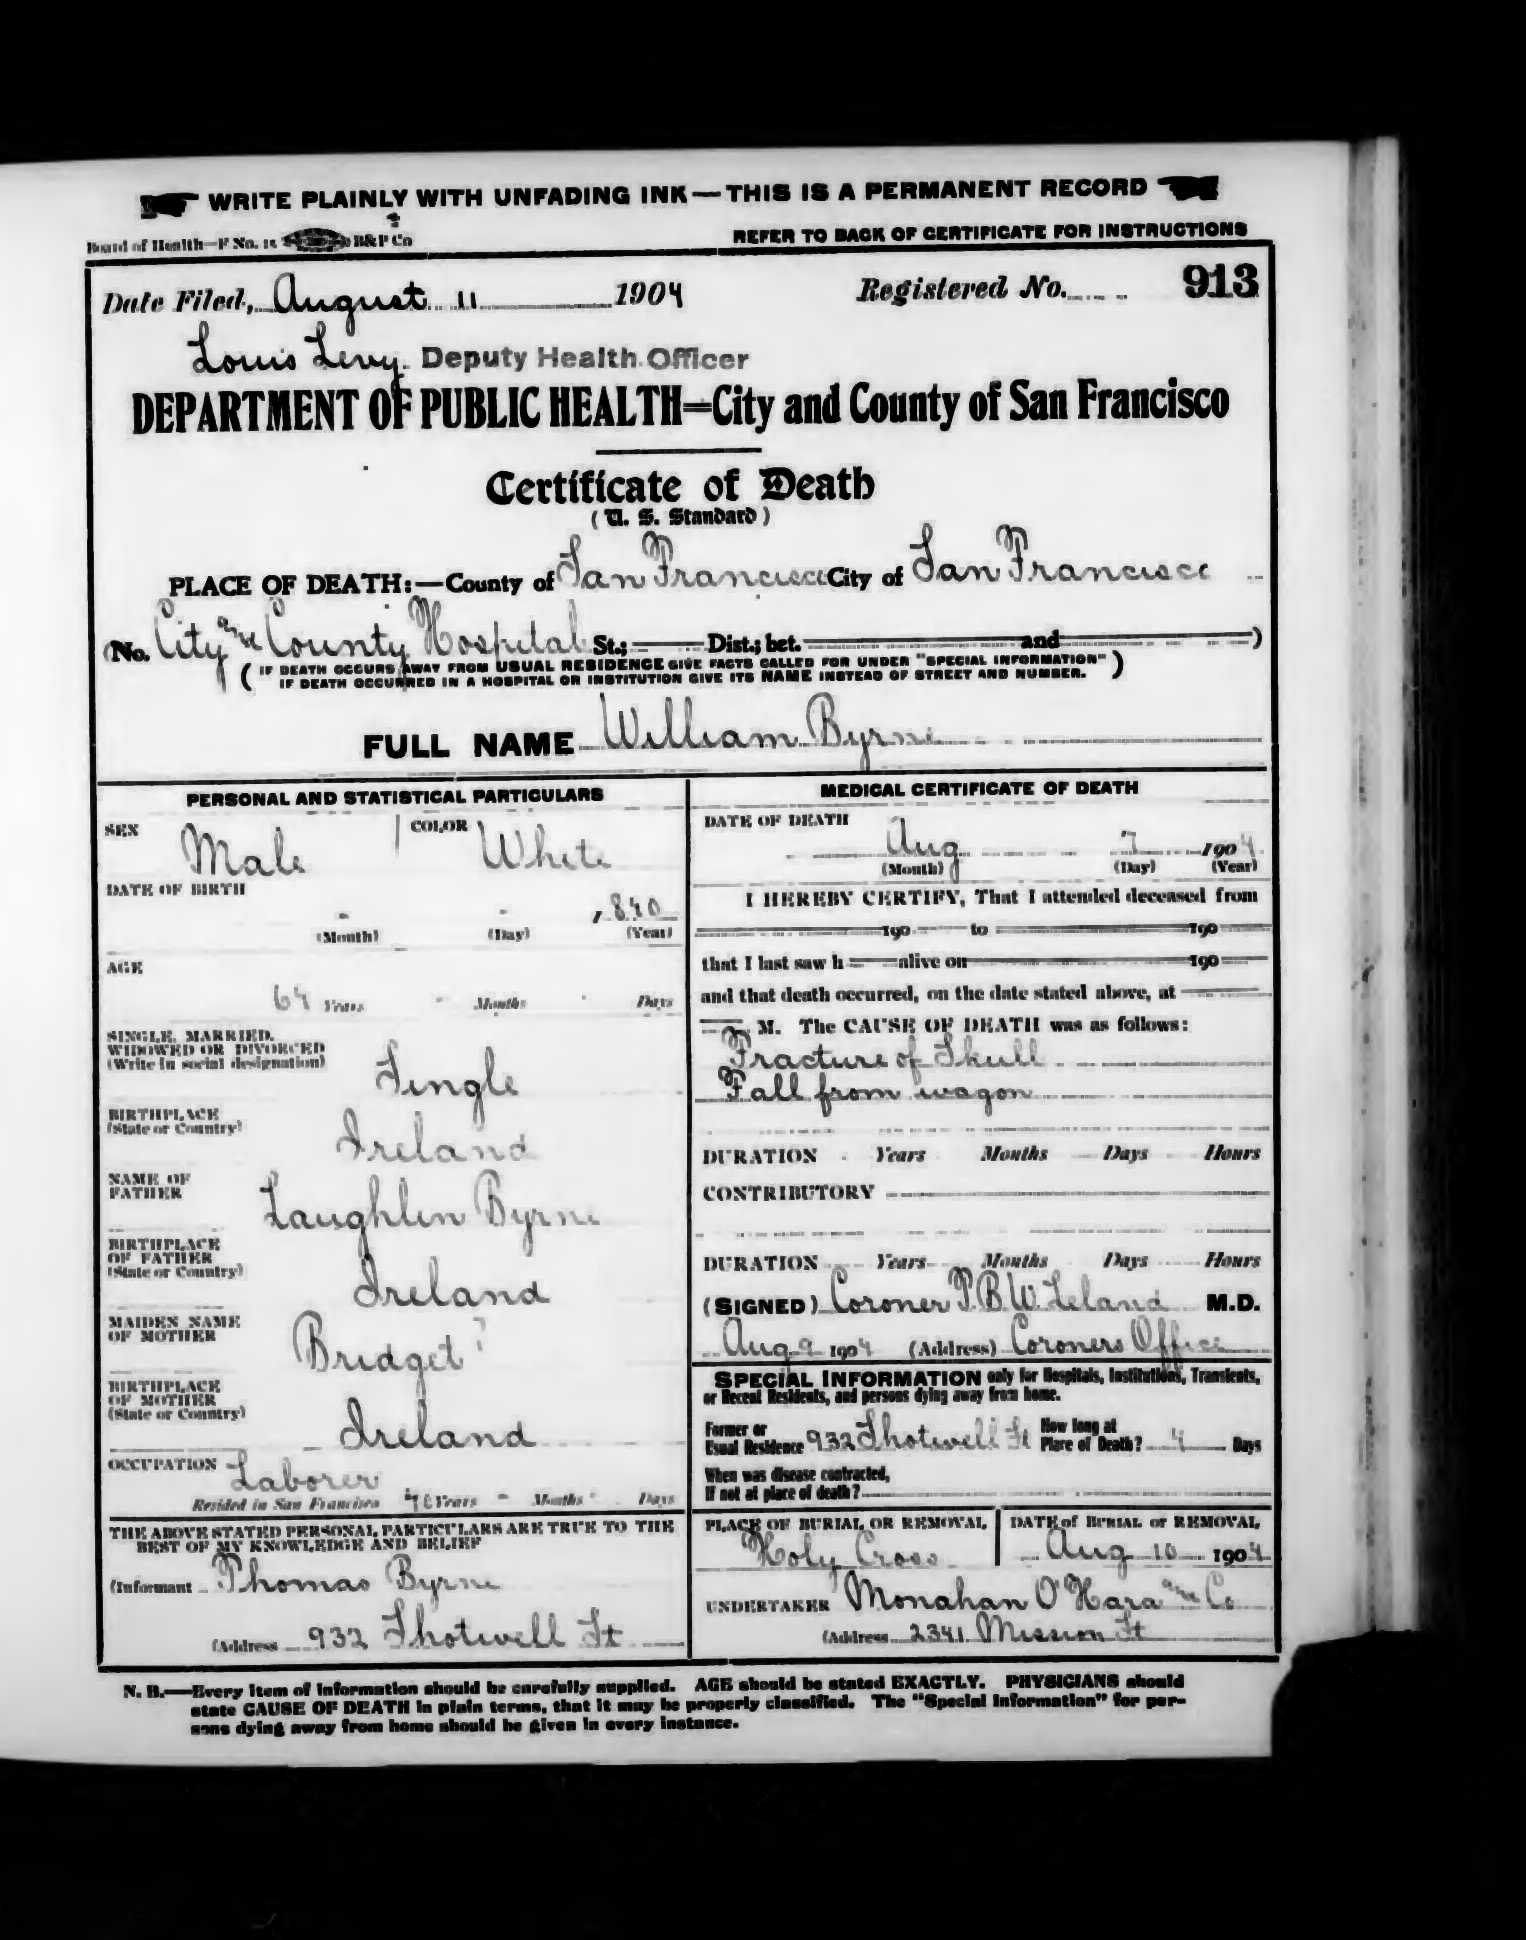 WRITE PLAINLY WITH UNFADING INK—THIS IS A PERMANENT RECORD
Board of Health—F No. 15 B&P Co
REFER TO BACK OF CERTIFICATE FOR INSTRUCTIONS
Date Filed, August 11 1904 Registered No. 913
Louis Levy Deputy Health Officer
DEPARTMENT OF PUBLIC HEALTH=City and County of San Francisco
Certificate of Death
(U. S. Standard)
PLACE OF DEATH:—County of San Francisco City of San Francisco
(No. City and County Hospital St.; Dist.; bet. and )
( IF DEATH OCCURS AWAY FROM USUAL RESIDENCE GIVE FACTS CALLED FOR UNDER "SPECIAL INFORMATION" )
IF DEATH OCCURRED IN A HOSPITAL OR INSTITUTION GIVE ITS NAME INSTEAD OF STREET AND NUMBER.
FULL NAME William Byrne
PERSONAL AND STATISTICAL PARTICULARS
SEX Male COLOR White
DATE OF BIRTH
- - 1840
(Month) (Day) (Year)
AGE
64 Years - Months - Days
SINGLE, MARRIED,
WIDOWED OR DIVORCED
(Write in social designation)
Single
BIRTHPLACE
(State or Country)
Ireland
NAME OF
FATHER
Laughlin Byrne
BIRTHPLACE
OF FATHER
(State or Country)
Ireland
MAIDEN NAME
OF MOTHER
Bridget ?
BIRTHPLACE
OF MOTHER
(State or Country)
Ireland
OCCUPATION Laborer
Resided in San Francisco Years - Months - Days
THE ABOVE STATED PERSONAL PARTICULARS ARE TRUE TO THE
BEST OF MY KNOWLEDGE AND BELIEF
(Informant Thomas Byrne
(Address 932 Shotwell St
MEDICAL CERTIFICATE OF DEATH
DATE OF DEATH
Aug 7 1904
(Month) (Day) (Year)
I HEREBY CERTIFY, That I attended deceased from
190 to 190
that I last saw h alive on 190
and that death occurred, on the date stated above, at
M. The CAUSE OF DEATH was as follows:
Fracture of Skull
Fall from wagon
DURATION Years Months Days Hours
CONTRIBUTORY
DURATION Years Months Days Hours
(SIGNED) Coroner T.B.W. Leland M.D.
Aug 9 1904 (Address) Coroners Office
SPECIAL INFORMATION only for Hospitals, Institutions, Transients,
or Recent Residents, and persons dying away from home.
Former or
Usual Residence 932 Shotwell St How long at
Place of Death? 4 Days
When was disease contracted,
If not at place of death?
PLACE OF BURIAL OR REMOVAL DATE of BURIAL or REMOVAL
Holy Cross Aug 10 1904
UNDERTAKER Monahan O'Hara and Co
(Address 2341 Mission St
N. B.—Every item of information should be carefully supplied. AGE should be stated EXACTLY. PHYSICIANS should
state CAUSE OF DEATH in plain terms, that it may be properly classified. The "Special Information" for per-
sons dying away from home should be given in every instance.